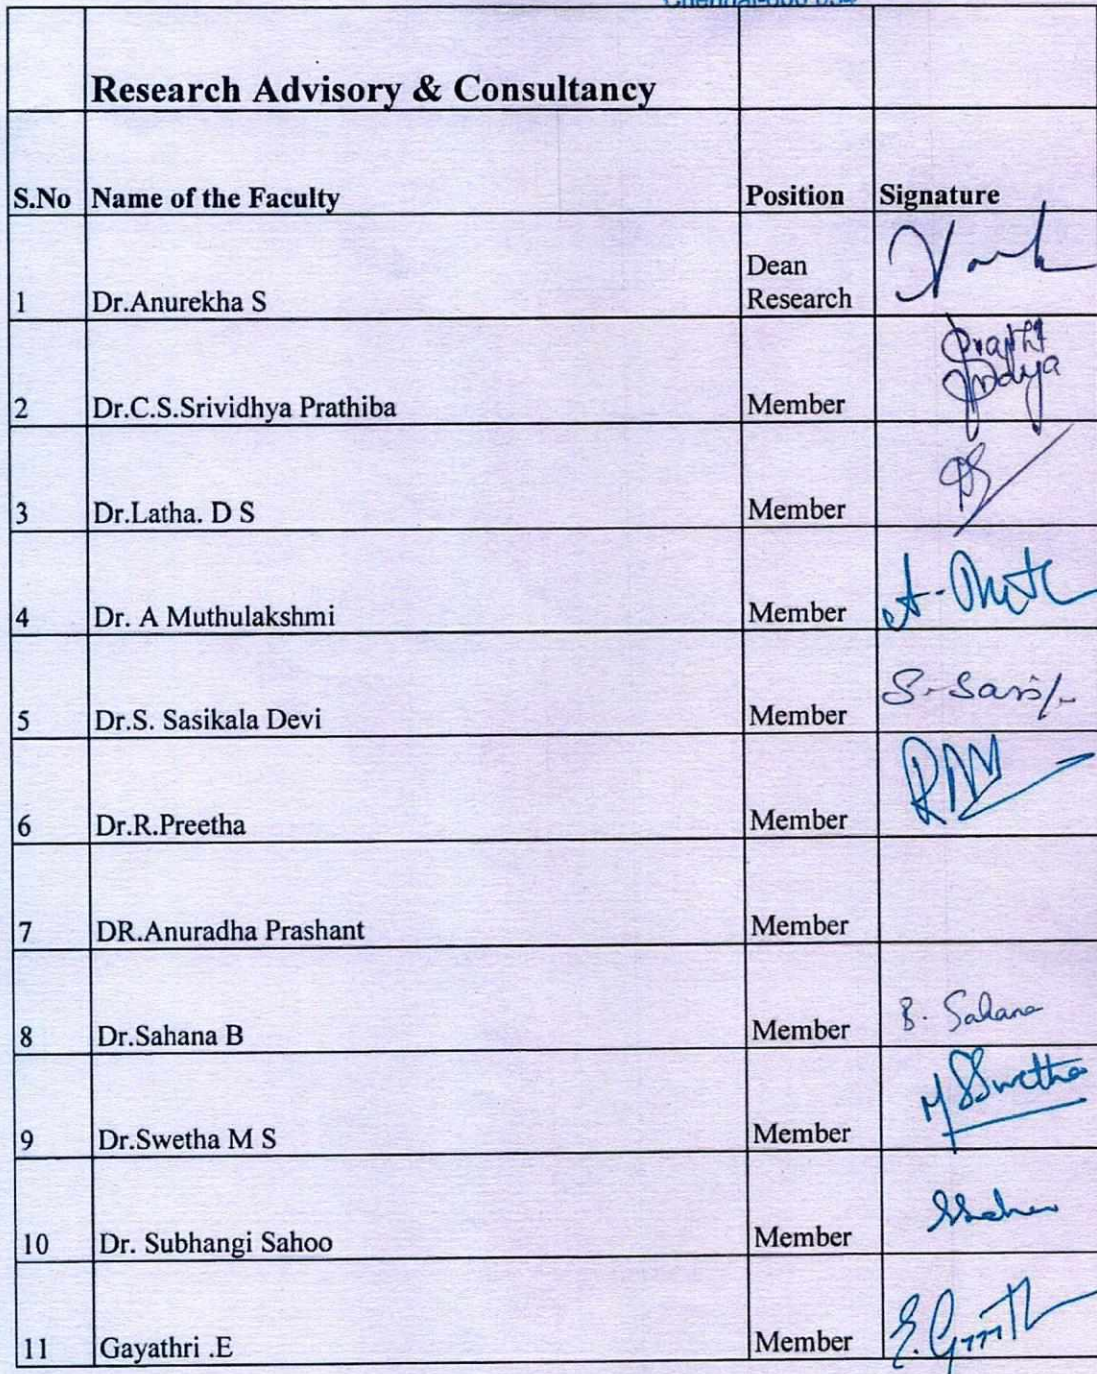 Research Advisory & Consultancy
S.No Name of the Faculty Position Signature
Dean
1 Dr.Anurekha S Research
2 Dr.C.S.Srividhya Prathiba Member
3 Dr.Latha. D S Member
4 Dr. A Muthulakshmi Member
5 Dr.S. Sasikala Devi Member S. Sasi/-
6 Dr.R.Preetha Member
7 DR.Anuradha Prashant Member
8 Dr.Sahana B Member B. Sahana
9 Dr.Swetha M S Member M S Swetha
10 Dr. Subhangi Sahoo Member
11 Gayathri .E Member